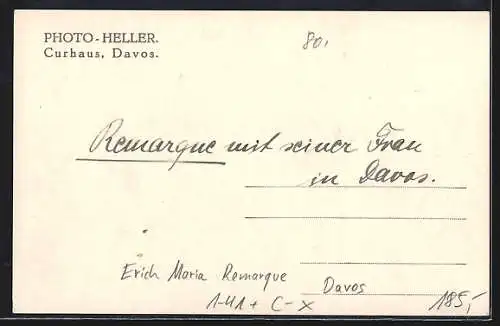 PHOTO-HELLER.
Curhaus, Davos.
80,
Remarque mit seiner Frau
in Davos.
Erich Maria Remarque
Davos
1-41+ C-X
185,-